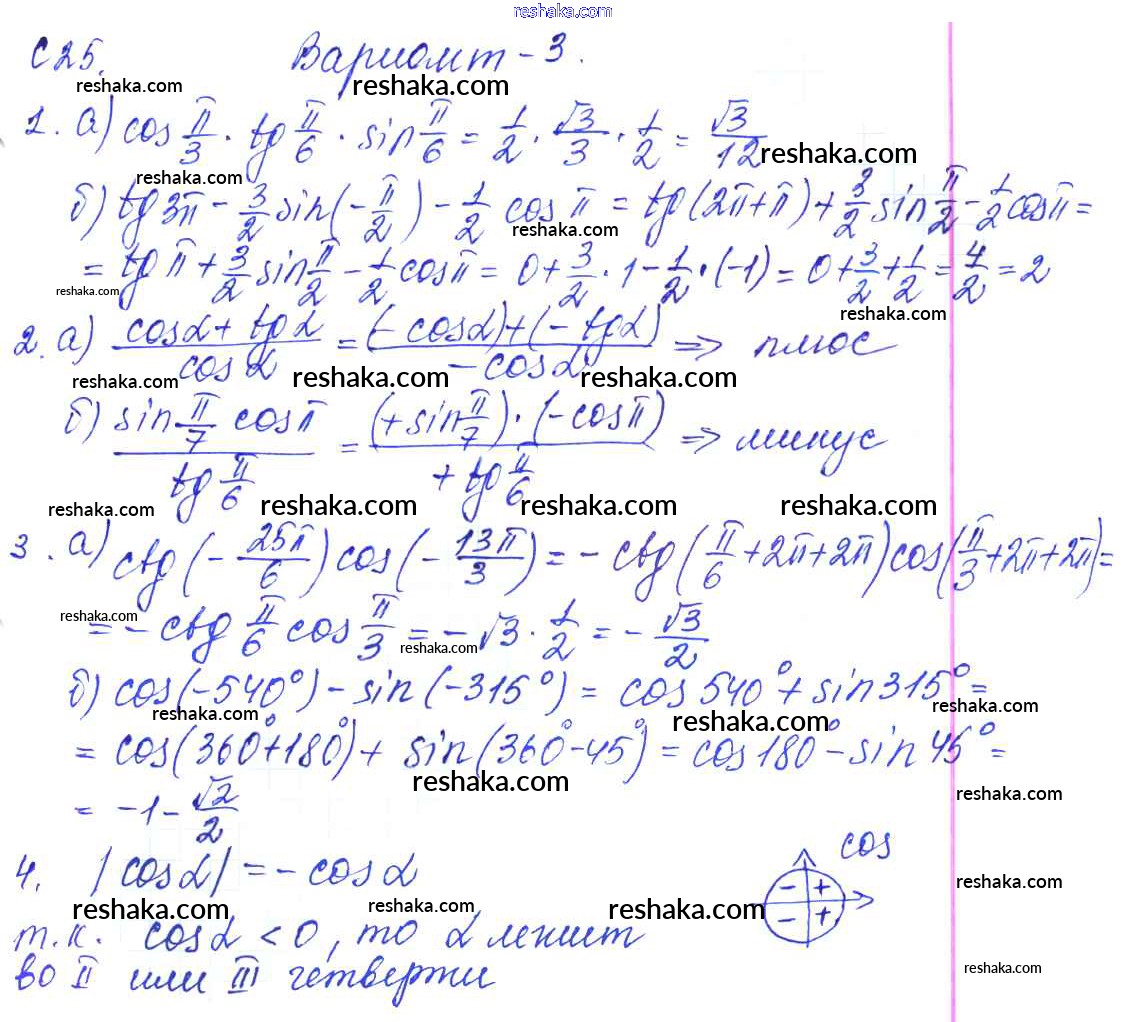 reshaka.com
С 25. Вариант - 3.
reshaka.com reshaka.com
1. а) cos π/3 · tg π/6 · sin π/6 = 1/2 · √3/3 · 1/2 = √3/12
reshaka.com
reshaka.com
б) tg 3π - 3/2 sin(-π/2) - 1/2 cos π = tg(2π+π) + 3/2 sin π/2 - 1/2 cos π =
reshaka.com
= tg π + 3/2 sin π/2 - 1/2 cos π = 0 + 3/2 · 1 - 1/2 · (-1) = 0 + 3/2 + 1/2 = 4/2 = 2
reshaka.com reshaka.com
2. а) (cos α + tg α)/(cos α) = ((-cos α) + (-tg α))/(-cos α) => плюс
reshaka.com reshaka.com reshaka.com
б) (sin π/7 cos π)/(tg π/6) = ((+sin π/7) · (-cos π))/(+tg π/6) => минус
reshaka.com reshaka.com reshaka.com reshaka.com
3. а) ctg(-25π/6) cos(-13π/3) = -ctg(π/6 + 2π + 2π) cos(π/3 + 2π + 2π) =
reshaka.com
= -ctg π/6 cos π/3 = -√3 · 1/2 = -√3/2
reshaka.com
б) cos(-540°) - sin(-315°) = cos 540° + sin 315° =
reshaka.com reshaka.com reshaka.com
= cos(360°+180°) + sin(360°-45°) = cos 180° - sin 45° =
reshaka.com
= -1 - √2/2
reshaka.com
4. |cos α| = -cos α
cos
- +
- +
reshaka.com
reshaka.com reshaka.com reshaka.com
т.к. cos α < 0, то α лежит
во II или III четверти
reshaka.com